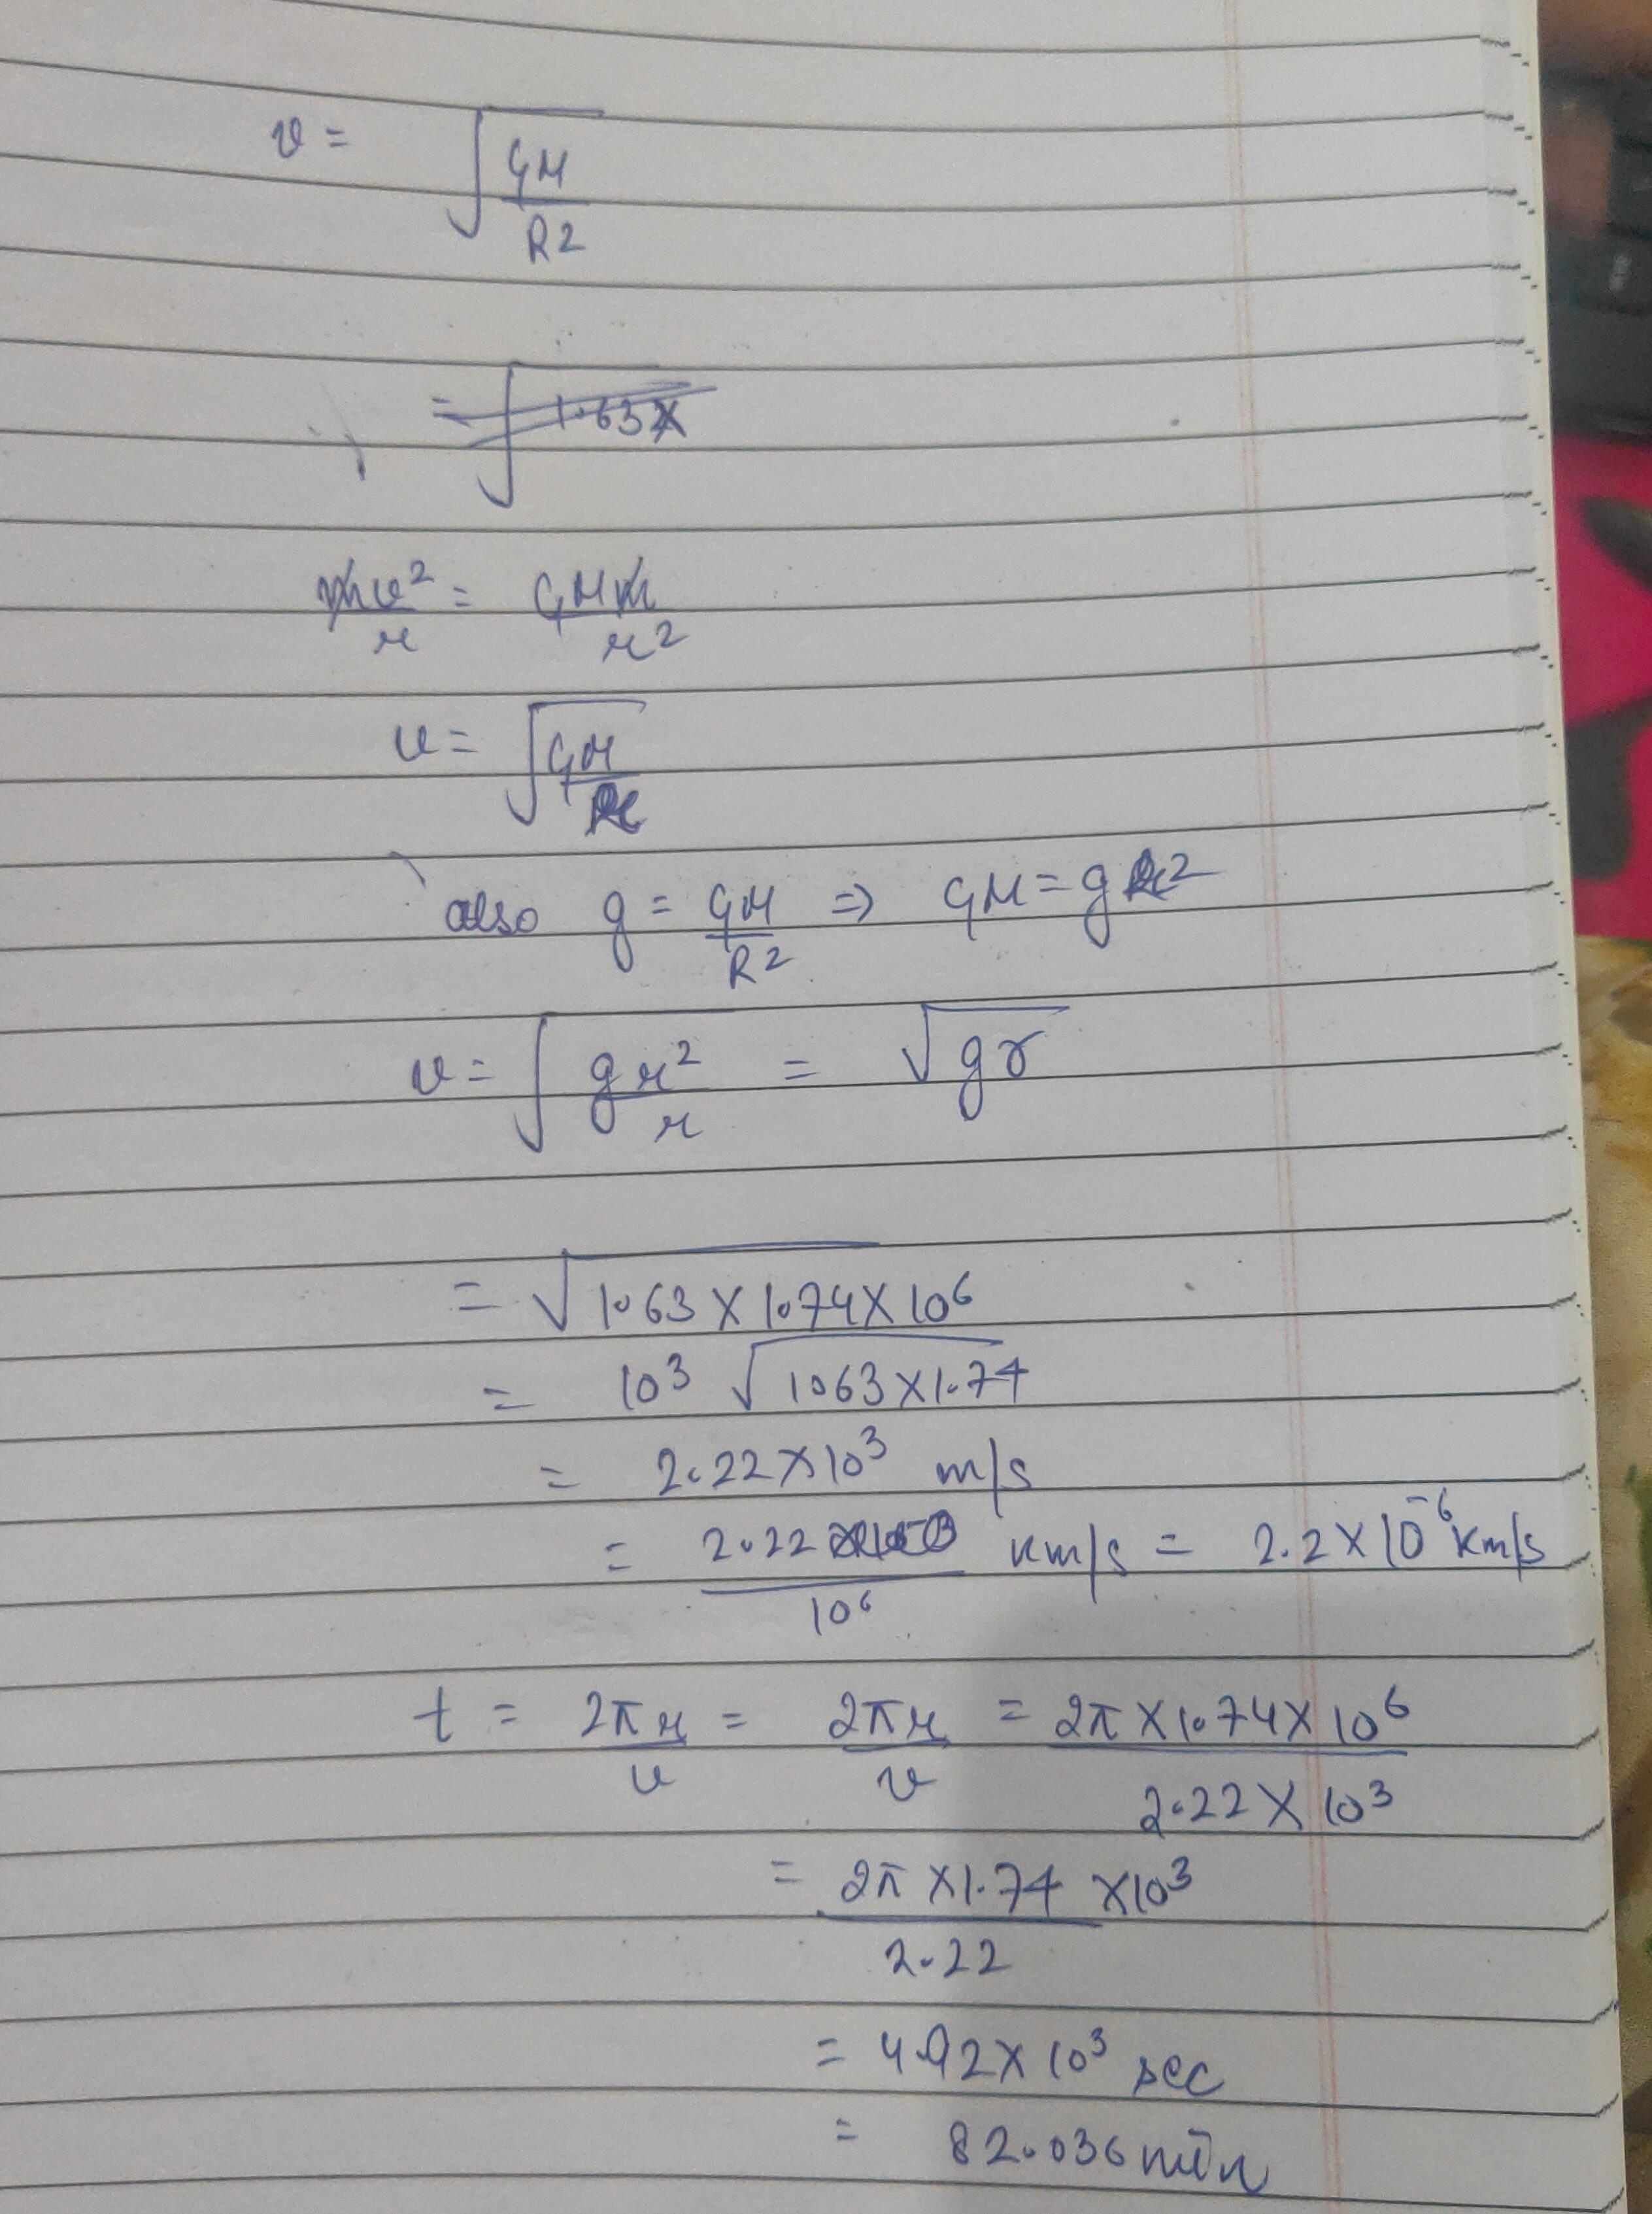 v = √(GM/R2)
= √1.63x
mv²/r = GMm/r²
v = √(GM/r)
also g = GM/R² ⇒ GM = gr²
v = √(gr²/r) = √gr
= √1.63 × 1.74 × 10⁶
= 10³ √1.63 × 1.74
= 2.22 × 10³ m/s
= 2.22/10⁶ km/s = 2.2 × 10⁻⁶ km/s
t = 2πr/v = 2πr/v = 2π × 1.74 × 10⁶/2.22 × 10³
= 2π × 1.74/2.22 × 10³
= 4.92 × 10³ sec
= 82.036 min